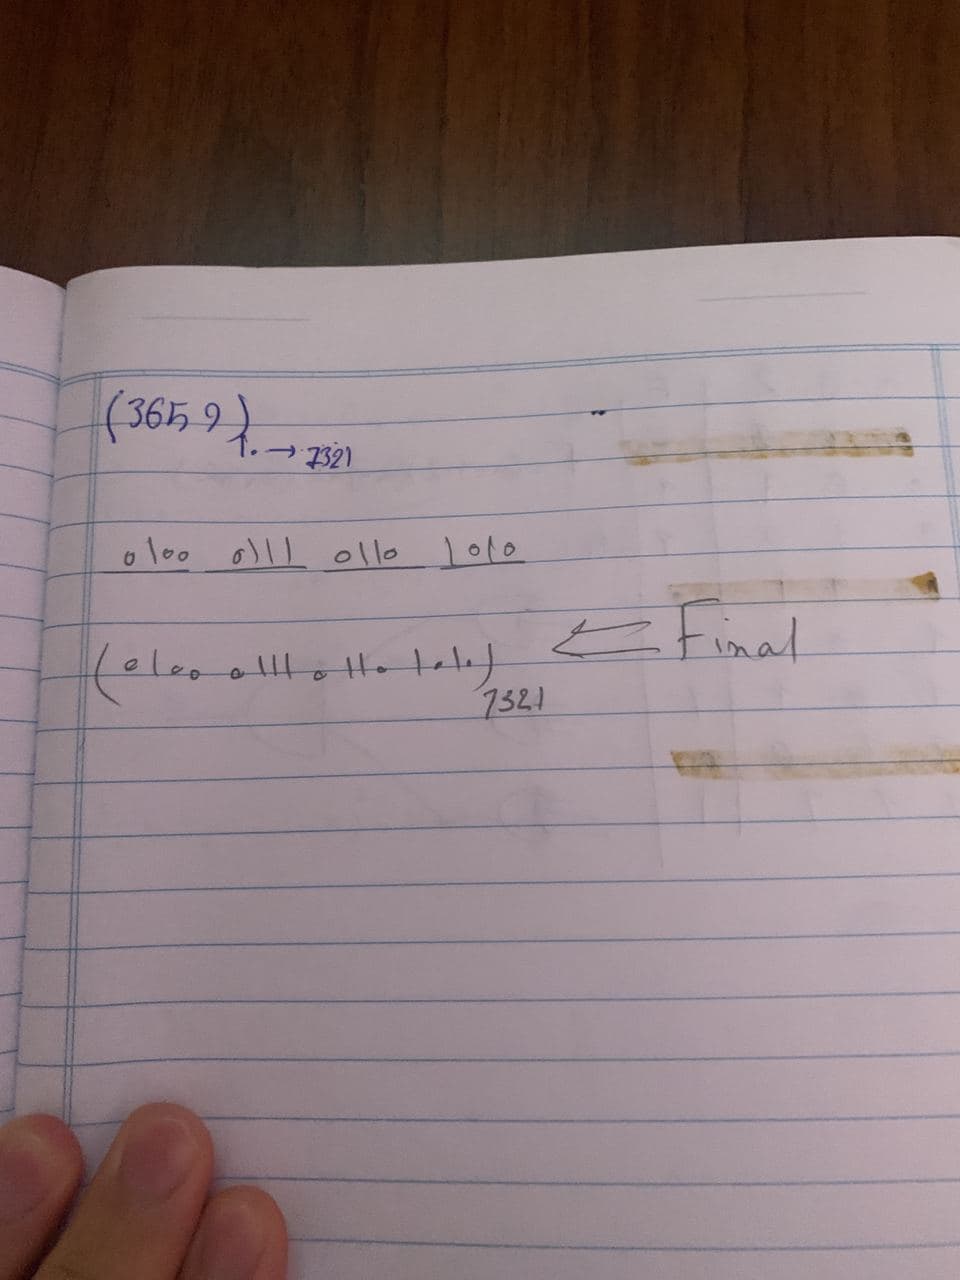 (3659)₁. → 7321
0100 0111 0110 1010
(0100 0111 0110 1010)₇₃₂₁ ⇐ Final